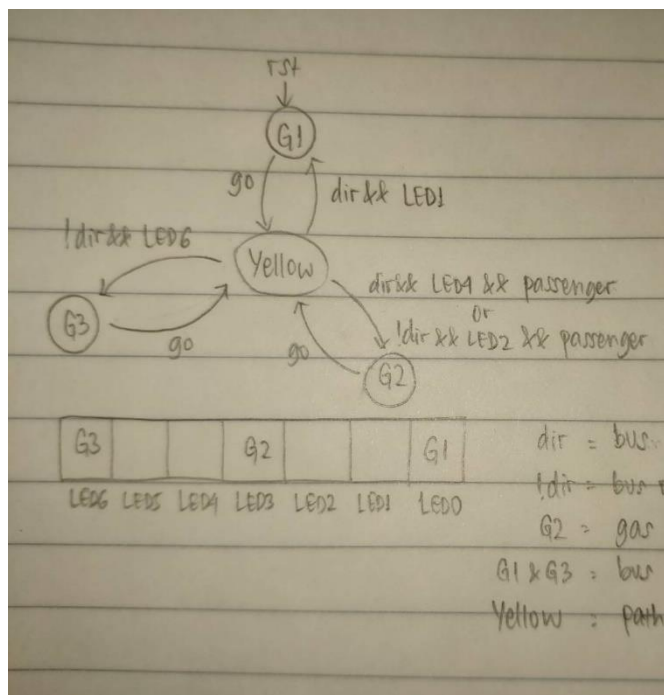 rst
G1
go
dir && LED1
!dir && LED6
Yellow
dir && LED4 && passenger
or
!dir && LED2 && passenger
G3
go
go
G2
G3 G2 G1
LED6 LED5 LED4 LED3 LED2 LED1 LED0
dir = bus
!dir = bus
G2 = gas
G1 & G3 = bus
Yellow = path